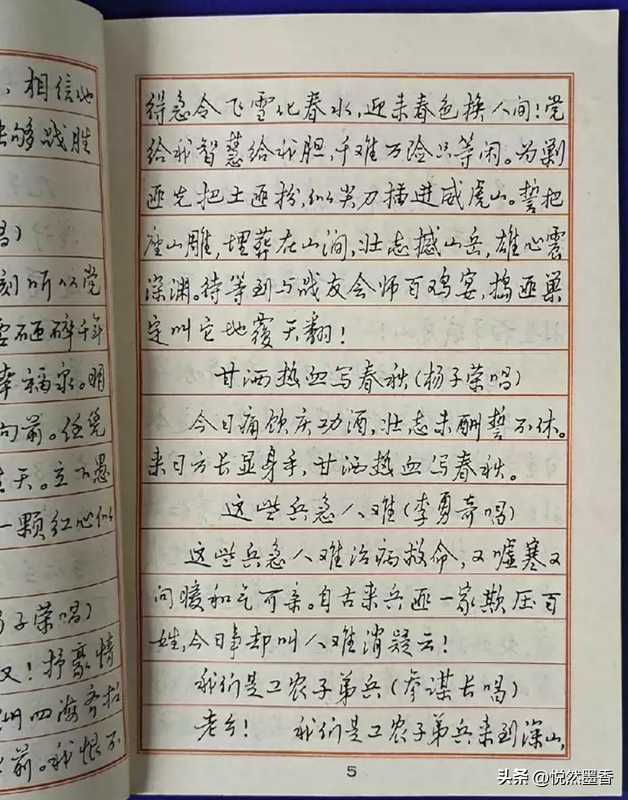 ，相信他
够战胜
唱）
刻听从党
要砸碎千年
幸福泉。明
向前。任凭
天。立下愚
一颗红心似
子荣唱）
又！抒豪情
洲四海齐招
前。我恨不
得急令飞雪化春水，迎来春色换人间！党
给我智慧给我胆，千难万险只等闲。为剿
匪先把土匪扮，似尖刀插进威虎山。誓把
座山雕，埋葬在山涧，壮志撼山岳，雄心震
深渊。待等到与战友会师百鸡宴，捣匪巢
定叫它地覆天翻！
甘洒热血写春秋（杨子荣唱）
今日痛饮庆功酒，壮志未酬誓不休。
来日方长显身手，甘洒热血写春秋。
这些兵急人难（李勇奇唱）
这些兵急人难治病救命，又嘘寒又
问暖和气可亲。自古来兵匪一家欺压百
姓，今日事却叫人难消疑云！
我们是工农子弟兵（参谋长唱）
老乡！ 我们是工农子弟兵来到深山，
5
头条@悦然墨香